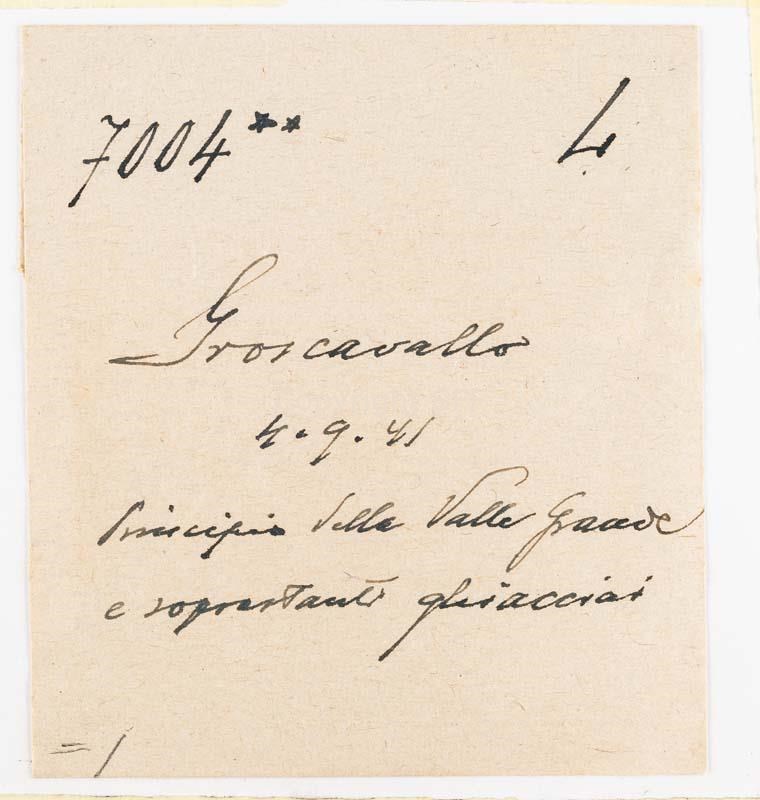 7004** L
Groscavallo
4.9.41
Principio della Valle Grande
e soprastanti ghiacciai
= 1